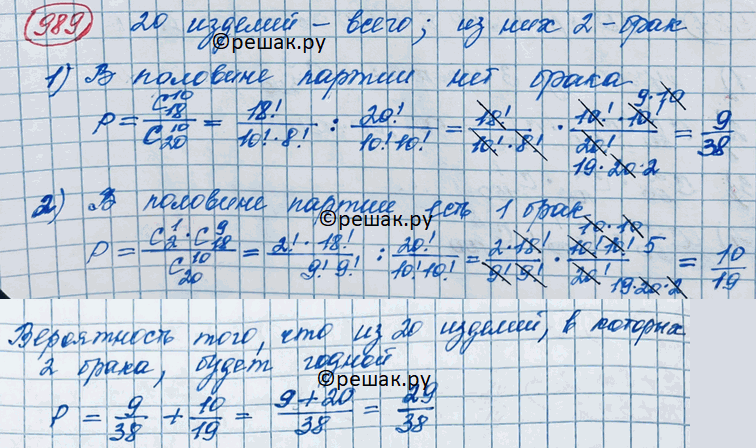 989 20 изделий – всего; из них 2 – брак
©решак.ру
1) В половине партии нет брака
P = C₁₈¹⁰ / C₂₀¹⁰ = 18! / (10! · 8!) : 20! / (10! 10!) = 18! / (10! · 8!) · (10! · 10!) / 20! = 9/38
9 · 10
19 · 20 · 2
2) В половине партии есть 1 брак
©решак.ру
P = (C₂¹ · C₁₈⁹) / C₂₀¹⁰ = (2! · 18!) / (9! 9!) : 20! / (10! 10!) = (2 · 18!) / (9! 9!) · (10! 10!) / 20! = 10/19
10 · 10
5
19 · 20 · 2
Вероятность того, что из 20 изделий, в которых
2 брака, будет годной
©решак.ру
P = 9/38 + 10/19 = (9 + 20)/38 = 29/38